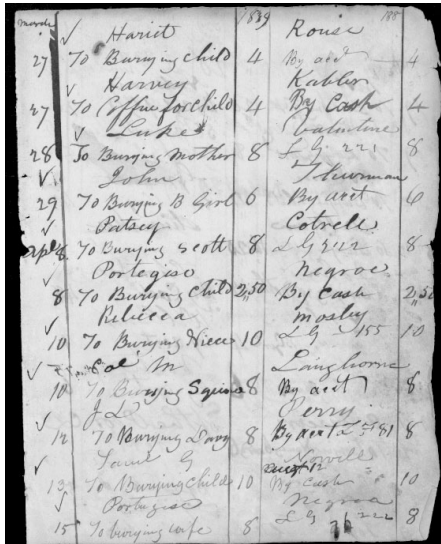 March 1839 188
✓ Hariet Rouse
27 To Burying Child 4 By acct 4
✓ Harvey Kabler
27 To Coffin for Child 4 By Cash 4
✓ Luke Valentine
28 To Burying Mother 8 L G 221 8
✓ John Thurman
29 To Burying B Girl 6 By acct 6
✓ Patsey Cotrell
Apl 8 To Burying Scott 8 L G 212 8
✓ Portegise Negroe
8 To Burying Child 2,50 By Cash 2,50
✓ Rebecca Mosley
10 To Burying Niece 10 L G 155 10
✓ M Langhorne
10 To Burying Squire 8 By acct 8
✓ J L Perry
12 To Burying Davy 8 By acct 181 8
✓ G Norvell
august 12
13 To Burying Child 10 By Cash 10
✓ Portegise Negroe
15 To burying wife 8 L G 222 8